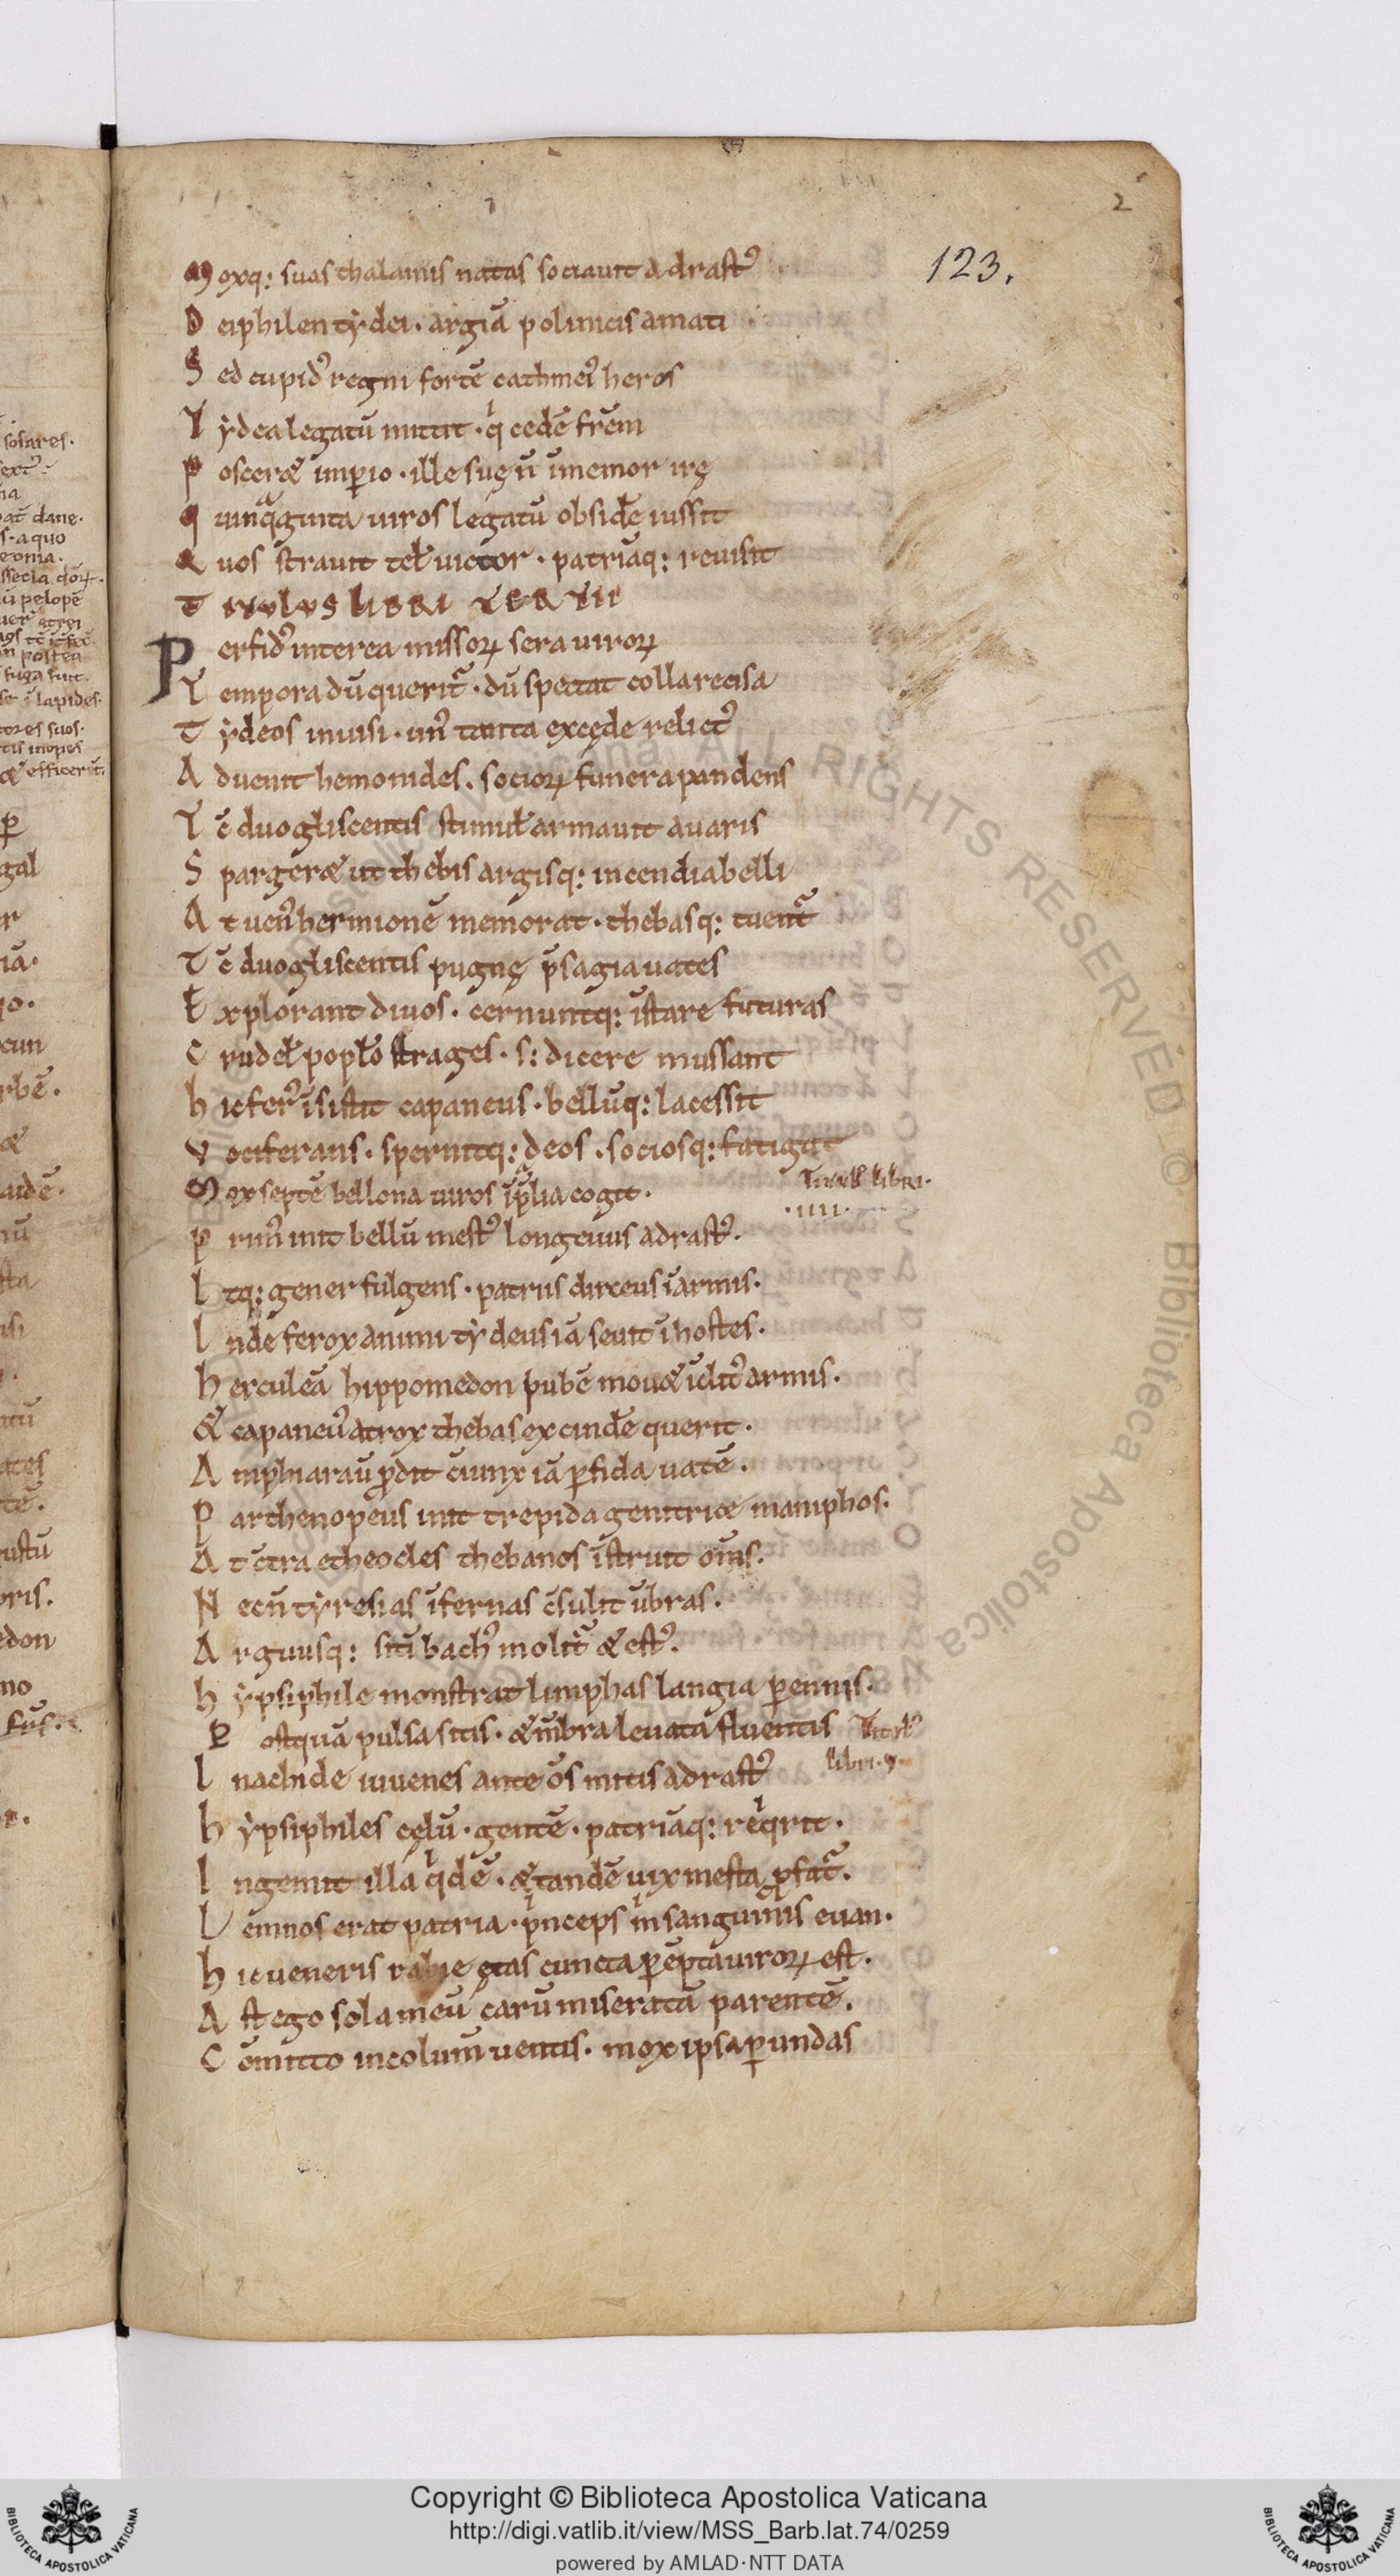 2
123.
Moxq: suas thalamis natas sociauit adrastꝰ
Deiphilen tẏdei · argiā polinicis amati
Sed cupidꝰ regni fortē cathmeiꝰ heros
Tẏdea legatū mittit · qͥ cedē frēm
Posceræ imꝑio · ille suę ū īmemor irę
qͥinqᵃginta uiros legatū obsidē iussit
Quos strauit teł uictor · patriāq: reuisit
TITVLVS LIBRI TERTII
Perfidꝰ interea missoꝝ sera uiroꝝ
Tempora dū queritᷓ · dū spectat colla recisa
Tẏdeos inuisi · unꝰ tanta excęde relictꝰ
Aduenit hemonides · socioꝝ funera pandens
Tē duo gliscentis stimuł armauit auaris
Spargeræ ut thebis argisq: incendia belli
At uenꝰ hermionē memorat · thebasq: tuentᷓ
Tē duo gliscentis pugnę p̄sagia uates
Explorant diuos · cernuntq: īstare futuras
Crudeł popło strages · s: dicere mussant
hic ferꝰ īsistit capaneus · bellūq: lacessit
Vociferans · spernitq: deos · sociosq: fatigat
Mox septē bellona uiros īpᵉlia cogit ·
Titulꝰ libri ·
· IIII ·
Primꝰ init bellū mestꝰ longeuus adrastꝰ ·
Itq: gener fulgens · patriis dirceus īarmis ·
Inde ferox animi tẏdeus iā seuit ī hostes ·
herculeā hippomedon pubē mouæ īclitꝰ armis ·
& capaneꝰ atrox thebas excindē querit ·
Amphiaraū ꝓdit ciunx iā ꝑfida uatē ·
Parthenopeus init trepida genitrice maniphos ·
At ctra etheocles thebanos īstruit om̄s ·
Necn̄ tẏresias īfernas c̄sulit ūbras ·
Arguusq: sitī bachꝰ molitᷓ & estꝰ ·
hẏpsiphile monstrat limphas langia ꝑennis ·
Postquā pulsa sitis · & m̄bra leuata fluentis
Titulꝰ
libri · V ·
Inachide iuuenes ante os mitis adrastꝰ
hẏpsiphiles cęlū · gentē · patriāq: reqͥrit ·
Ingemit illa qͥdē · & tandē uix mesta ꝓfatᷓ ·
Lemnos erat patria · pͥnceps m̄ sanguinis euan ·
hic ueneris rabie ętas cuncta ꝑēpta uiroꝝ est ·
Ast ego sola meū carū miserata parentē ·
Com̄itto incolumē uentis · mox ipsa ꝑ undas
Copyright © Biblioteca Apostolica Vaticana
http://digi.vatlib.it/view/MSS_Barb.lat.74/0259
powered by AMLAD·NTT DATA